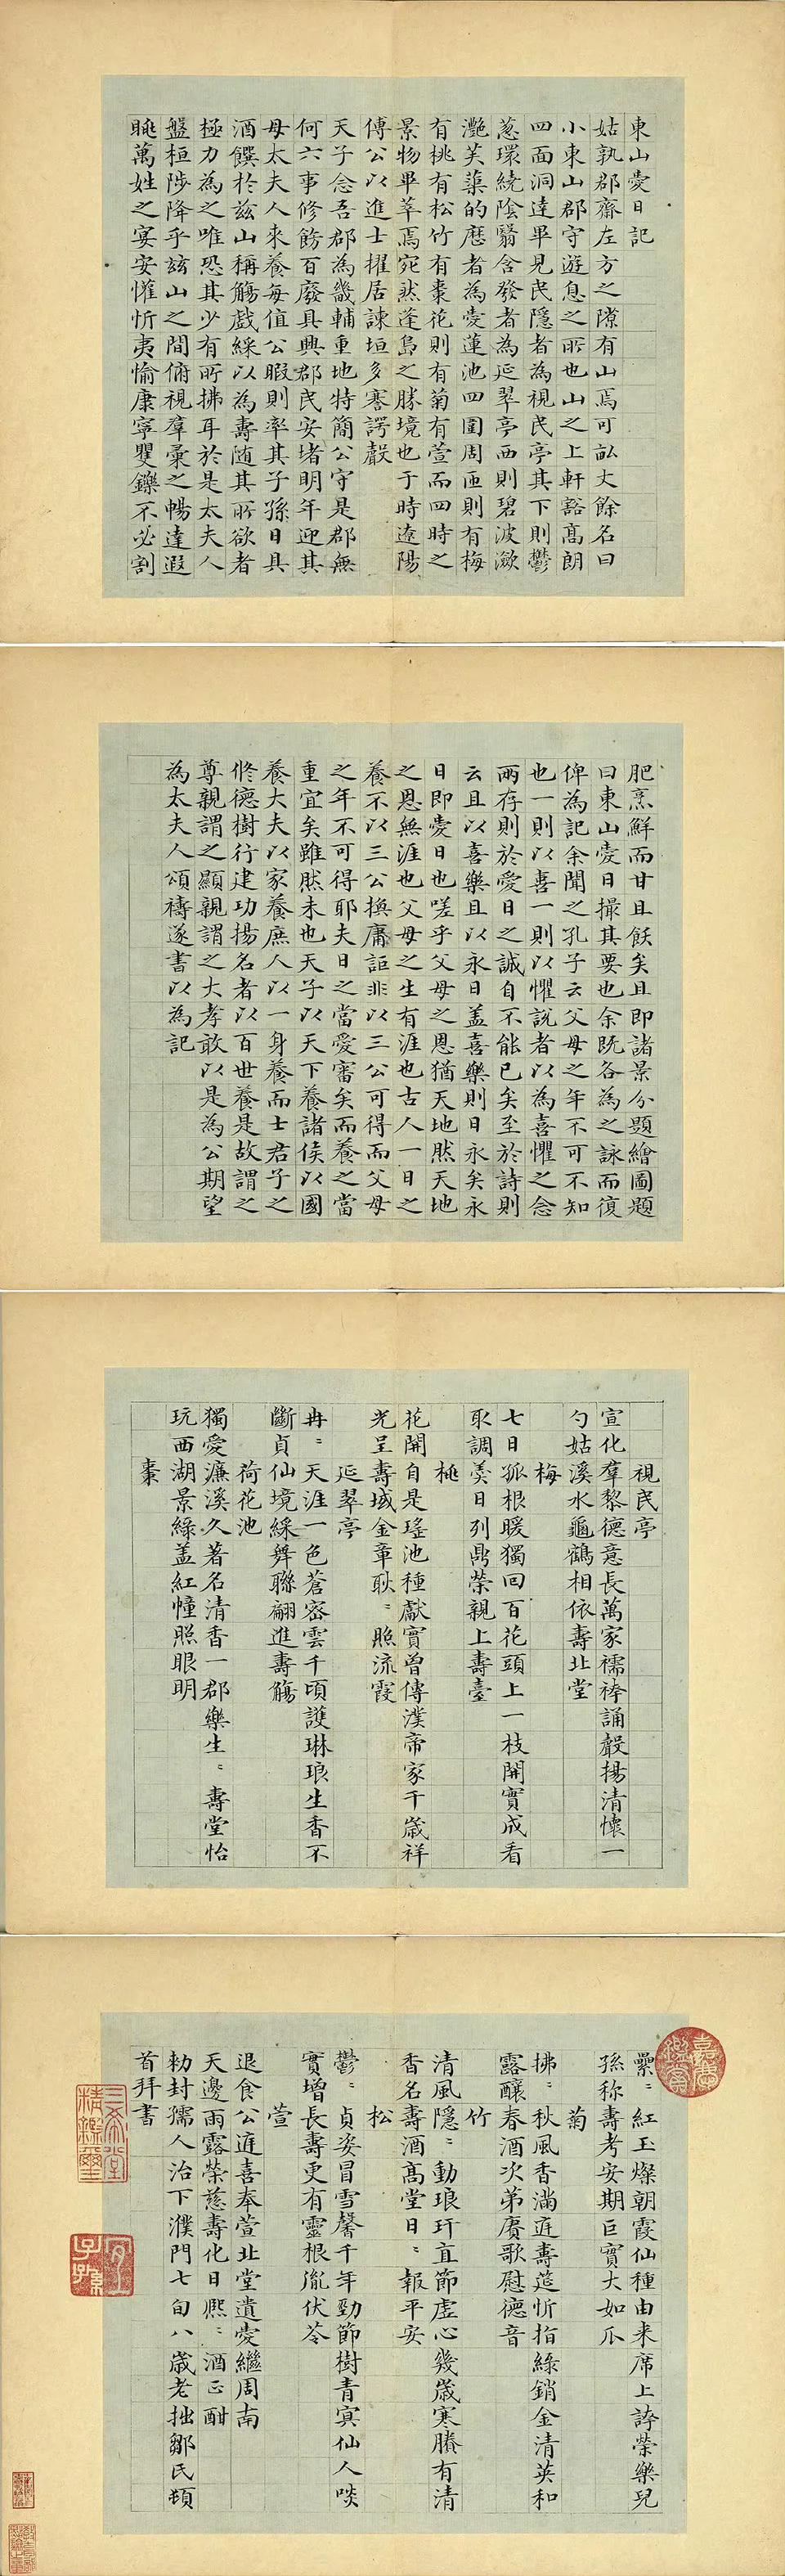 東山愛日記
姑孰郡齋左方之隙有山焉可畝丈餘名曰
小東山郡守遊息之所也山之上軒豁高朗
四面洞達畢見民隱者為視民亭其下則鬱
葱環繞陰翳含發者為延翠亭西則碧波瀲
灔芙蕖的歷者為愛蓮池四圍周匝則有梅
有桃有松竹有棗花則有菊有萱而四時之
景物畢萃焉宛然蓬島之勝境也于時遼陽
傅公以進士擢居諫垣多謇諤聲
天子念吾郡為畿輔重地特簡公守是郡無
何六事修飭百廢具興郡民安堵明年迎其
母太夫人來養每值公暇則率其子孫日具
酒饌於茲山稱觴戲綵以為壽随其所欲者
極力為之唯恐其少有所拂耳於是太夫人
盤桓陟降乎茲山之間俯視羣彙之暢達遐
眺萬姓之宴安懽忻夷愉康寧矍鑠不必割
肥烹鮮而甘且飫矣且即諸景分題繪圖題
曰東山愛日撮其要也余既各為之詠而復
俾為記余聞之孔子云父母之年不可不知
也一則以喜一則以懼說者以為喜懼之念
兩存則於愛日之誠自不能已矣至於詩則
云且以喜樂且以永日盖喜樂則日永矣永
日即愛日也嗟乎父母之恩猶天地然天地
之恩無涯也父母之生有涯也古人一日之
養不以三公換庸詎非以三公可得而父母
之年不可得耶夫日之當愛審矣而養之當
重宜矣雖然未也天子以天下養諸侯以國
養大夫以家養庶人以一身養而士君子之
修德樹行建功揚名者以百世養是故謂之
尊親謂之顯親謂之大孝敢以是為公期望
為太夫人頌禱遂書以為記
視民亭
宣化羣黎德意長萬家襦袴誦聲揚清懷一
勺姑溪水龜鶴相依壽北堂
梅
七日孤根暖獨回百花頭上一枝開實成看
取調羹日列鼎榮親上壽臺
桃
花開自是瑤池種獻實曾傳漢帝家千歲祥
光呈壽域金章耿〻照流霞
延翠亭
冉〻天涯一色蒼密雲千頃護琳琅生香不
斷貞仙境綵舞聯翩進壽觴
荷花池
獨愛濂溪久著名清香一郡樂生〻壽堂怡
玩西湖景綠盖紅幢照眼明
棗
纍〻紅玉燦朝霞仙種由来席上誇榮樂兒
孫称壽考安期巨實大如瓜
菊
拂〻秋風香滿庭壽筵忻指綠銷金清英和
露釀春酒次第賡歌慰德音
竹
清風隱〻動琅玕直節虛心幾歲寒賸有清
香名壽酒高堂日〻報平安
松
鬱〻貞姿冒雪馨千年勁節樹青冥仙人啖
實增長壽更有靈根胤伏苓
萱
退食公庭喜奉萱北堂遺愛繼周南
天邊雨露榮慈壽化日熈〻酒正酣
勑封孺人治下濮門七旬八歲老拙鄒氏頓
首拜書
三希堂
精鑑璽
宜子孫